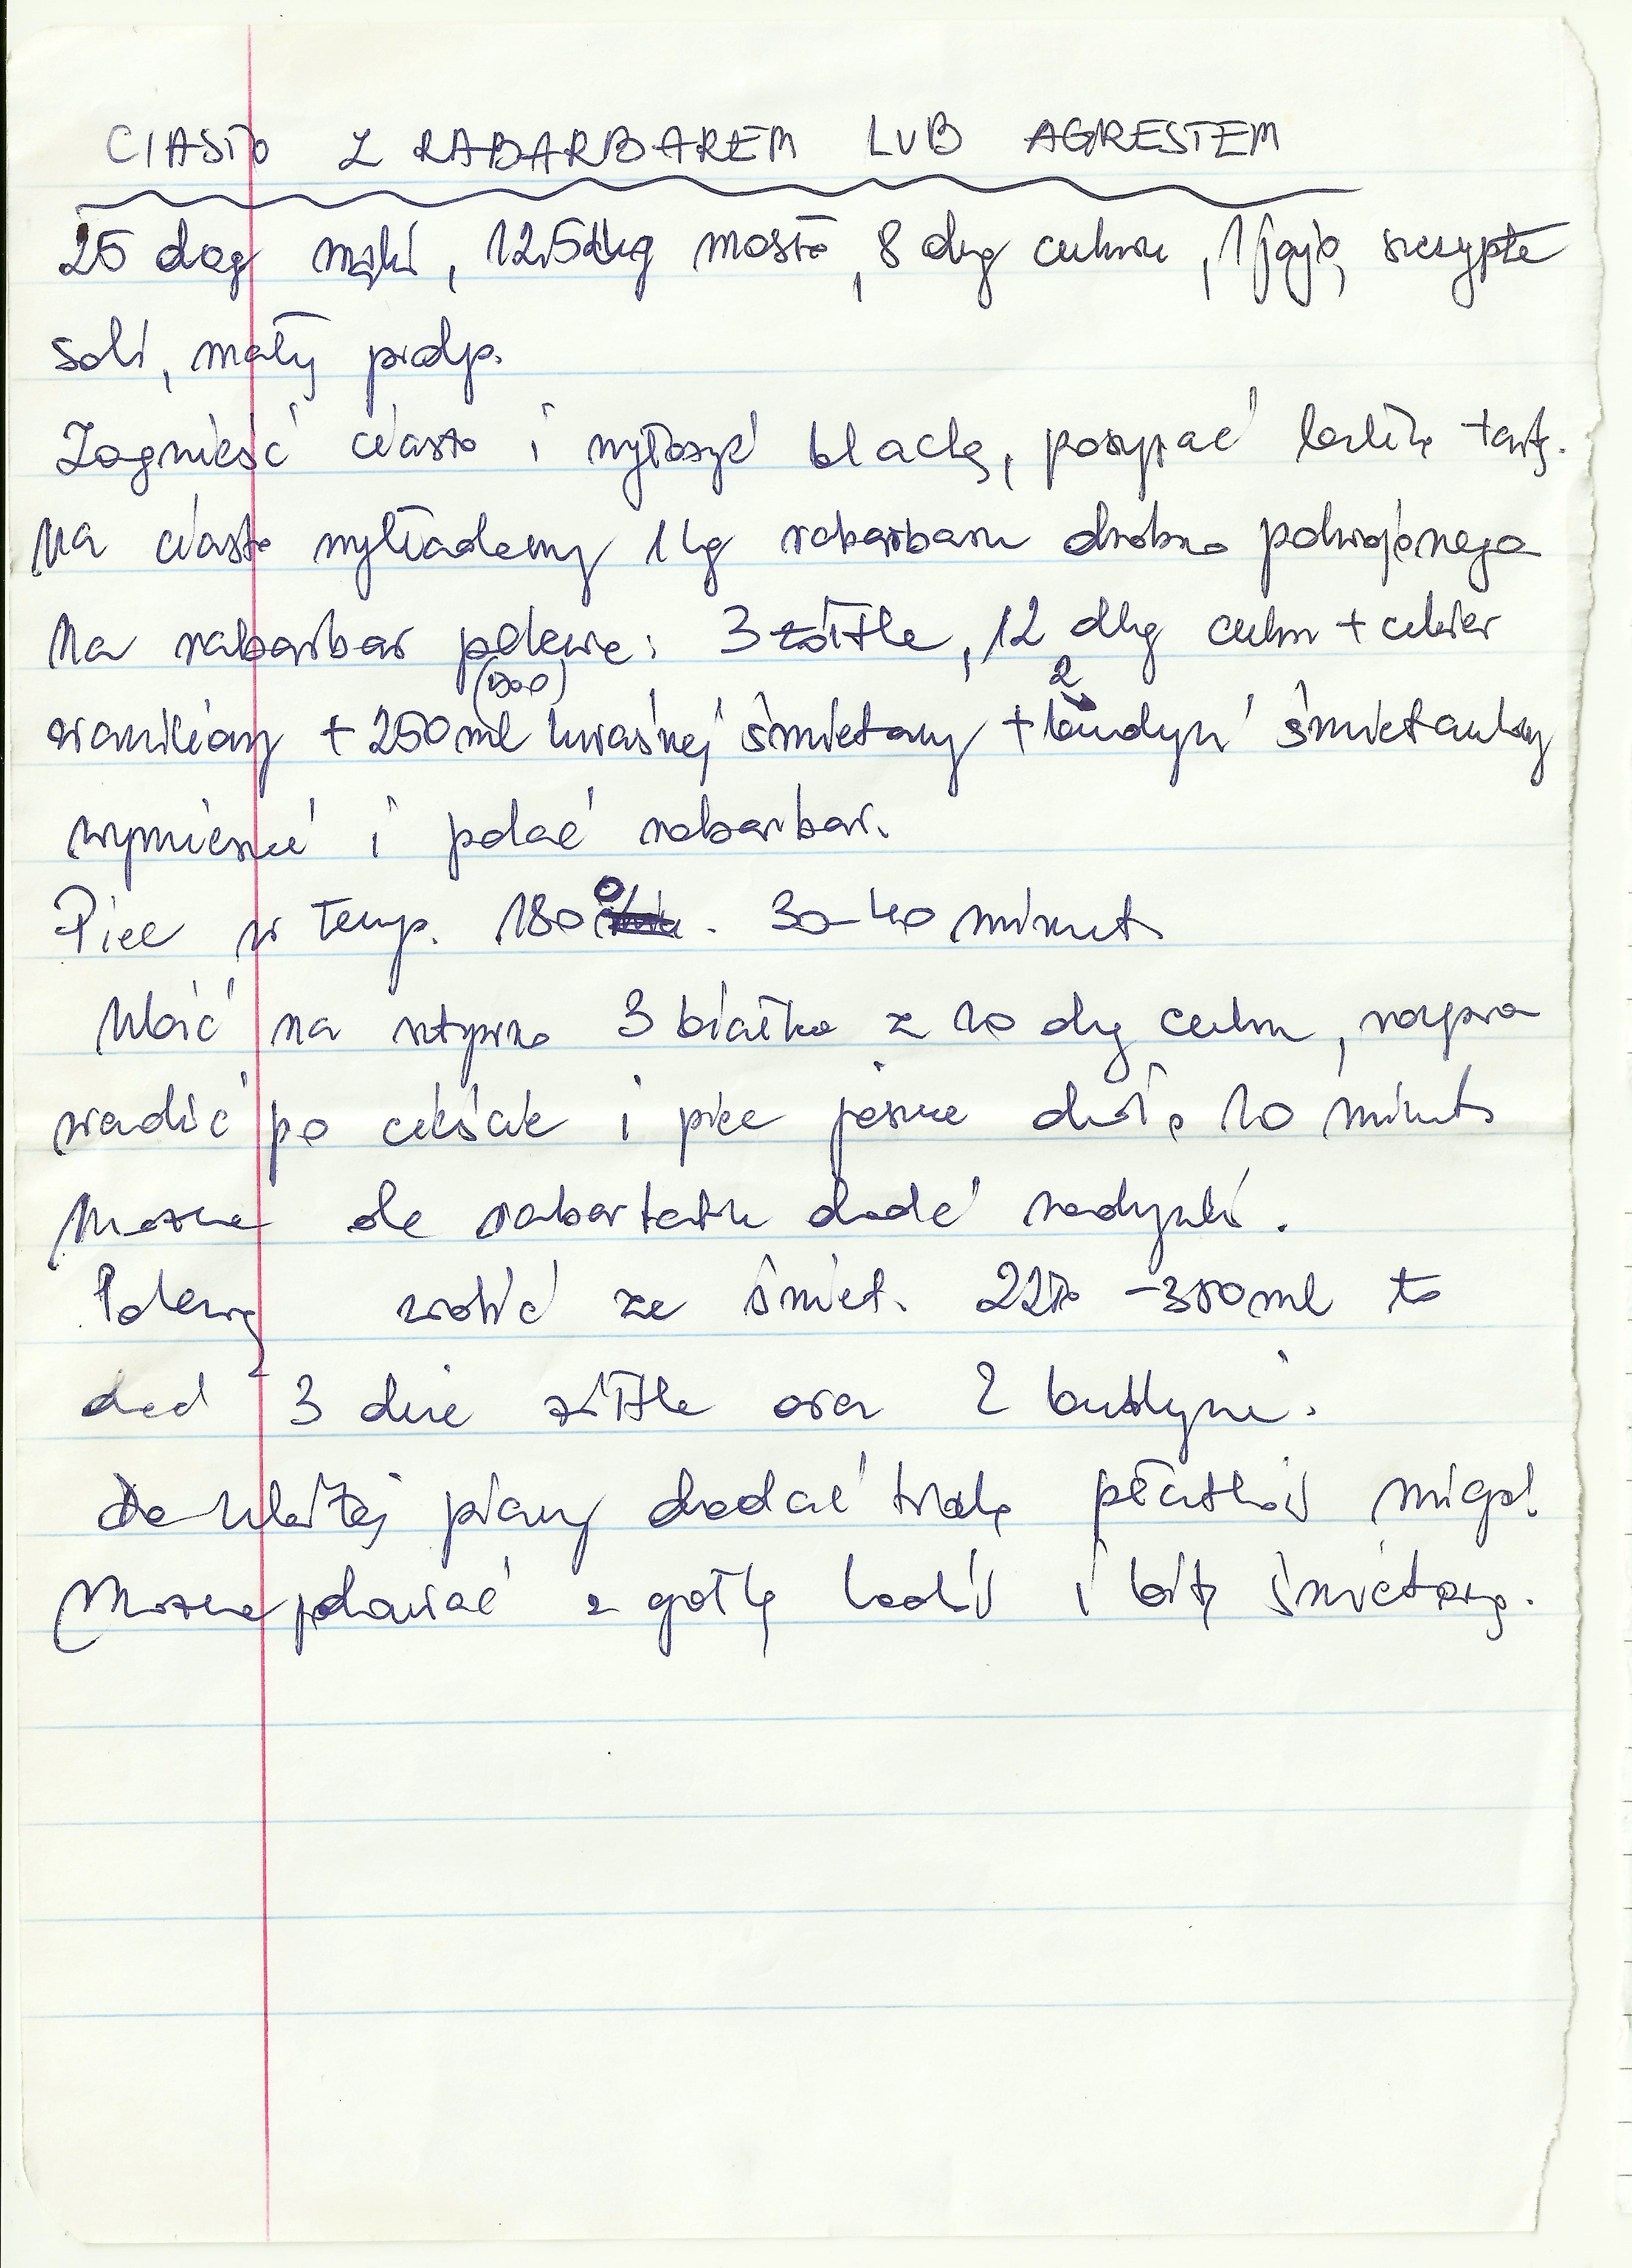 CIASTO Z RABARBAREM LUB AGRESTEM
25 dag mąki, 12,5 dkg masła, 8 dkg cukru, 1 jajo, szczypta
soli, mały prdp.
Zagnieść ciasto i wyłożyć blachę, posypać bułką tartą.
Na ciasto wykładamy 1 kg rabarbaru drobno pokrojonego
Na rabarbar polewę: 3 żółtka, 12 dkg cukru + cukier
(500) 2
waniliowy + 250 ml kwaśnej śmietany + budyń śmietankowy
wymieszać i polać rabarbar.
Piec w temp. 180°. 30-40 minut
Ubić na sztywno 3 białka z 20 dkg cukru, rozpro
wadzić po cieście i piec jeszcze około 20 minut
Można do rabarbaru dodać rodzynki.
Polewę zrobić ze śmiet. 22% - 350 ml to
dać 3 duże żółtka oraz 2 budynie.
Do ubitej piany dodać trochę płatków migd.
Można podawać z gałką lodów i bitą śmietaną.